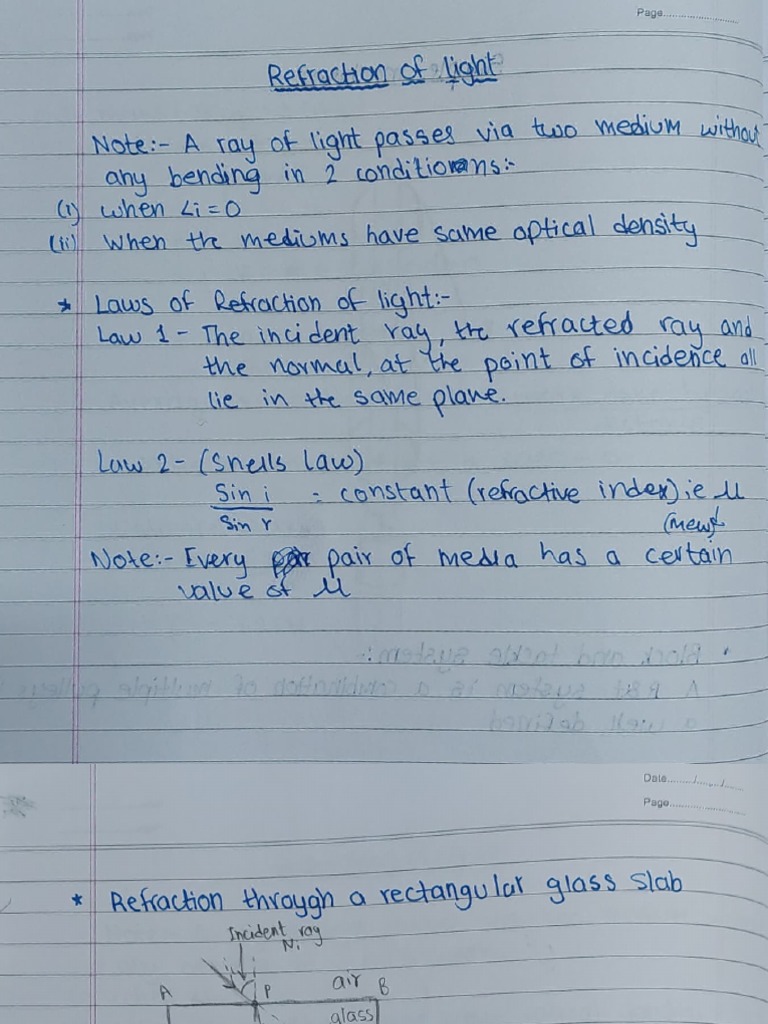 Page
Refraction of light
Note:- A ray of light passes via two medium without
any bending in 2 conditions:-
(i) when ∠i = 0
(ii) When the mediums have same optical density
* Laws of Refraction of light:-
Law 1 - The incident ray, the refracted ray and
the normal, at the point of incidence all
lie in the same plane.
Law 2 - (Snells law)
Sin i
= constant (refractive index) ie μ
Sin r
(mew)
Note:- Every pair of media has a certain
value of μ
Block and tackle system:-
A B&T system is a combination of multiple pulleys
a well defined
Date
Page
* Refraction through a rectangular glass slab
Incident ray
N₁
i
A
P
air
B
glass